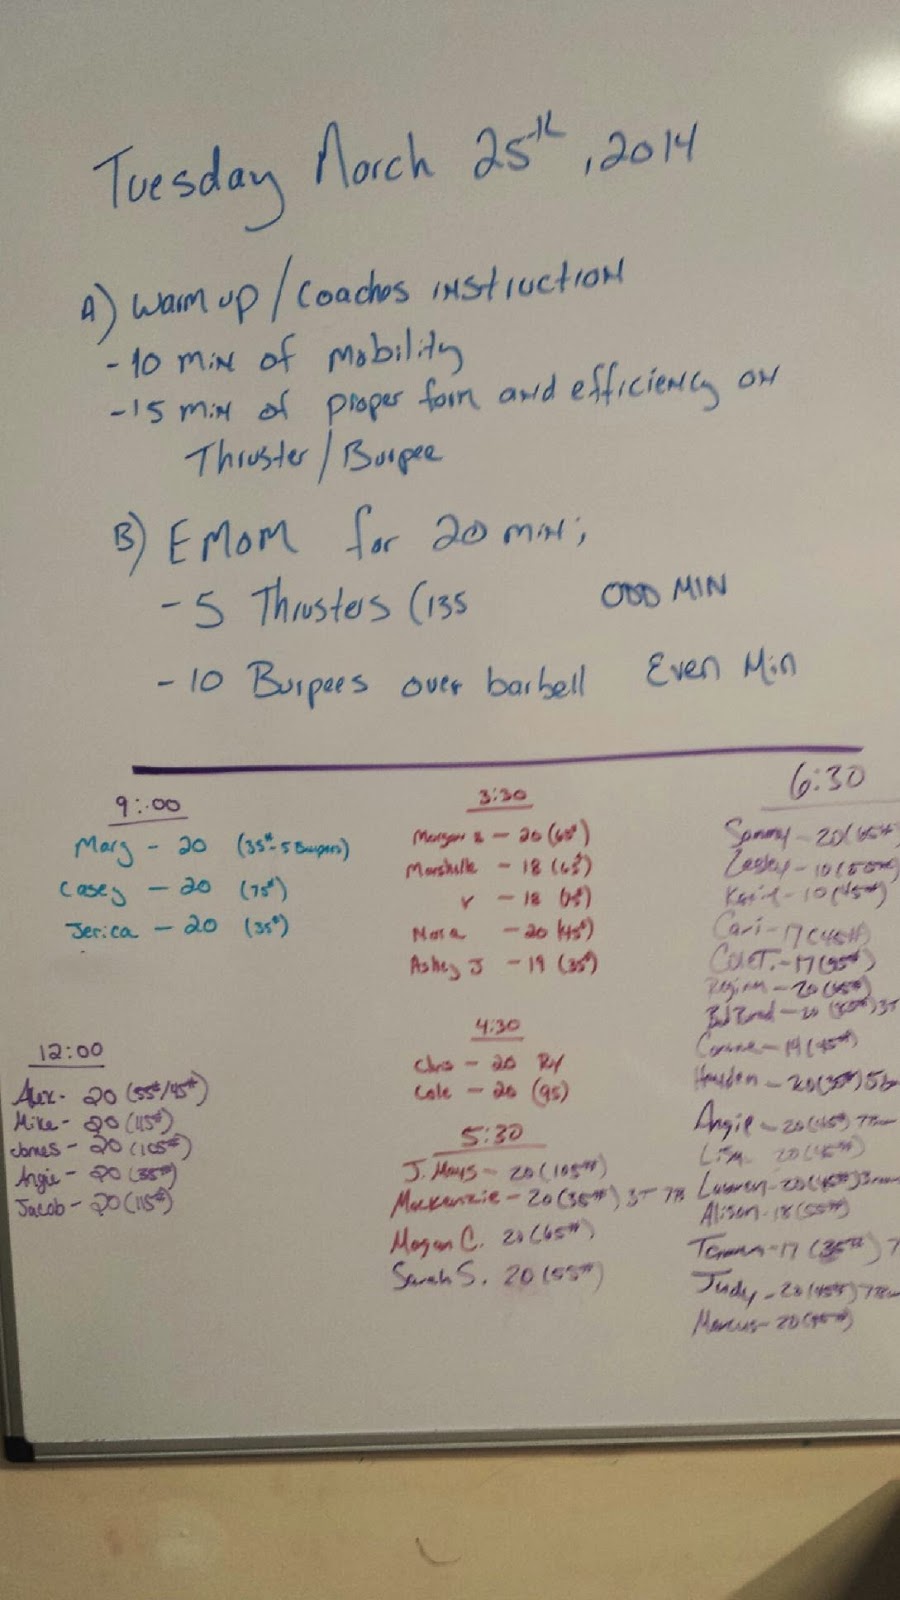 Tuesday March 25th, 2014
A) Warm up / Coaches instruction
-10 min of mobility
-15 min of proper form and efficiency on
Thruster / Burpee
B) EMOM for 20 min;
-5 Thrusters (135 ODD MIN
-10 Burpees over barbell Even Min
9:00
Marg - 20 (35# - 5 Burpees)
Casey - 20 (75#)
Jerica - 20 (35#)
12:00
Alex - 20 (55#/45#)
Mike - 20 (115#)
James - 20 (105#)
Angie - 20 (35#)
Jacob - 20 (115#)
3:30
- 20 (65#)
- 18 (65#)
- 18
Nora - 20 (45#)
Ashey J - 19 (35#)
4:30
Chris - 20 Rx
Cole - 20 (95)
5:30
J. Mays - 20 (105#)
Mackenzie - 20 (35#) 3T 7B
Megan C. 20 (65#)
Sarah S. 20 (55#)
6:30
Sammy - 20
- 10
- 10 (45#)
Cari - 17 (45#)
Cole T. - 17 (95#)
- 20
- 20
- 14 (45#)
Hayden - 20 (35#)
Angie - 20 (45#)
Lisa 20 (45#)
Lauren - 20 (45#)
Alison - 18 (55#)
- 17 (35#)
Judy - 20 (45#)
Marcus - 20 (95#)